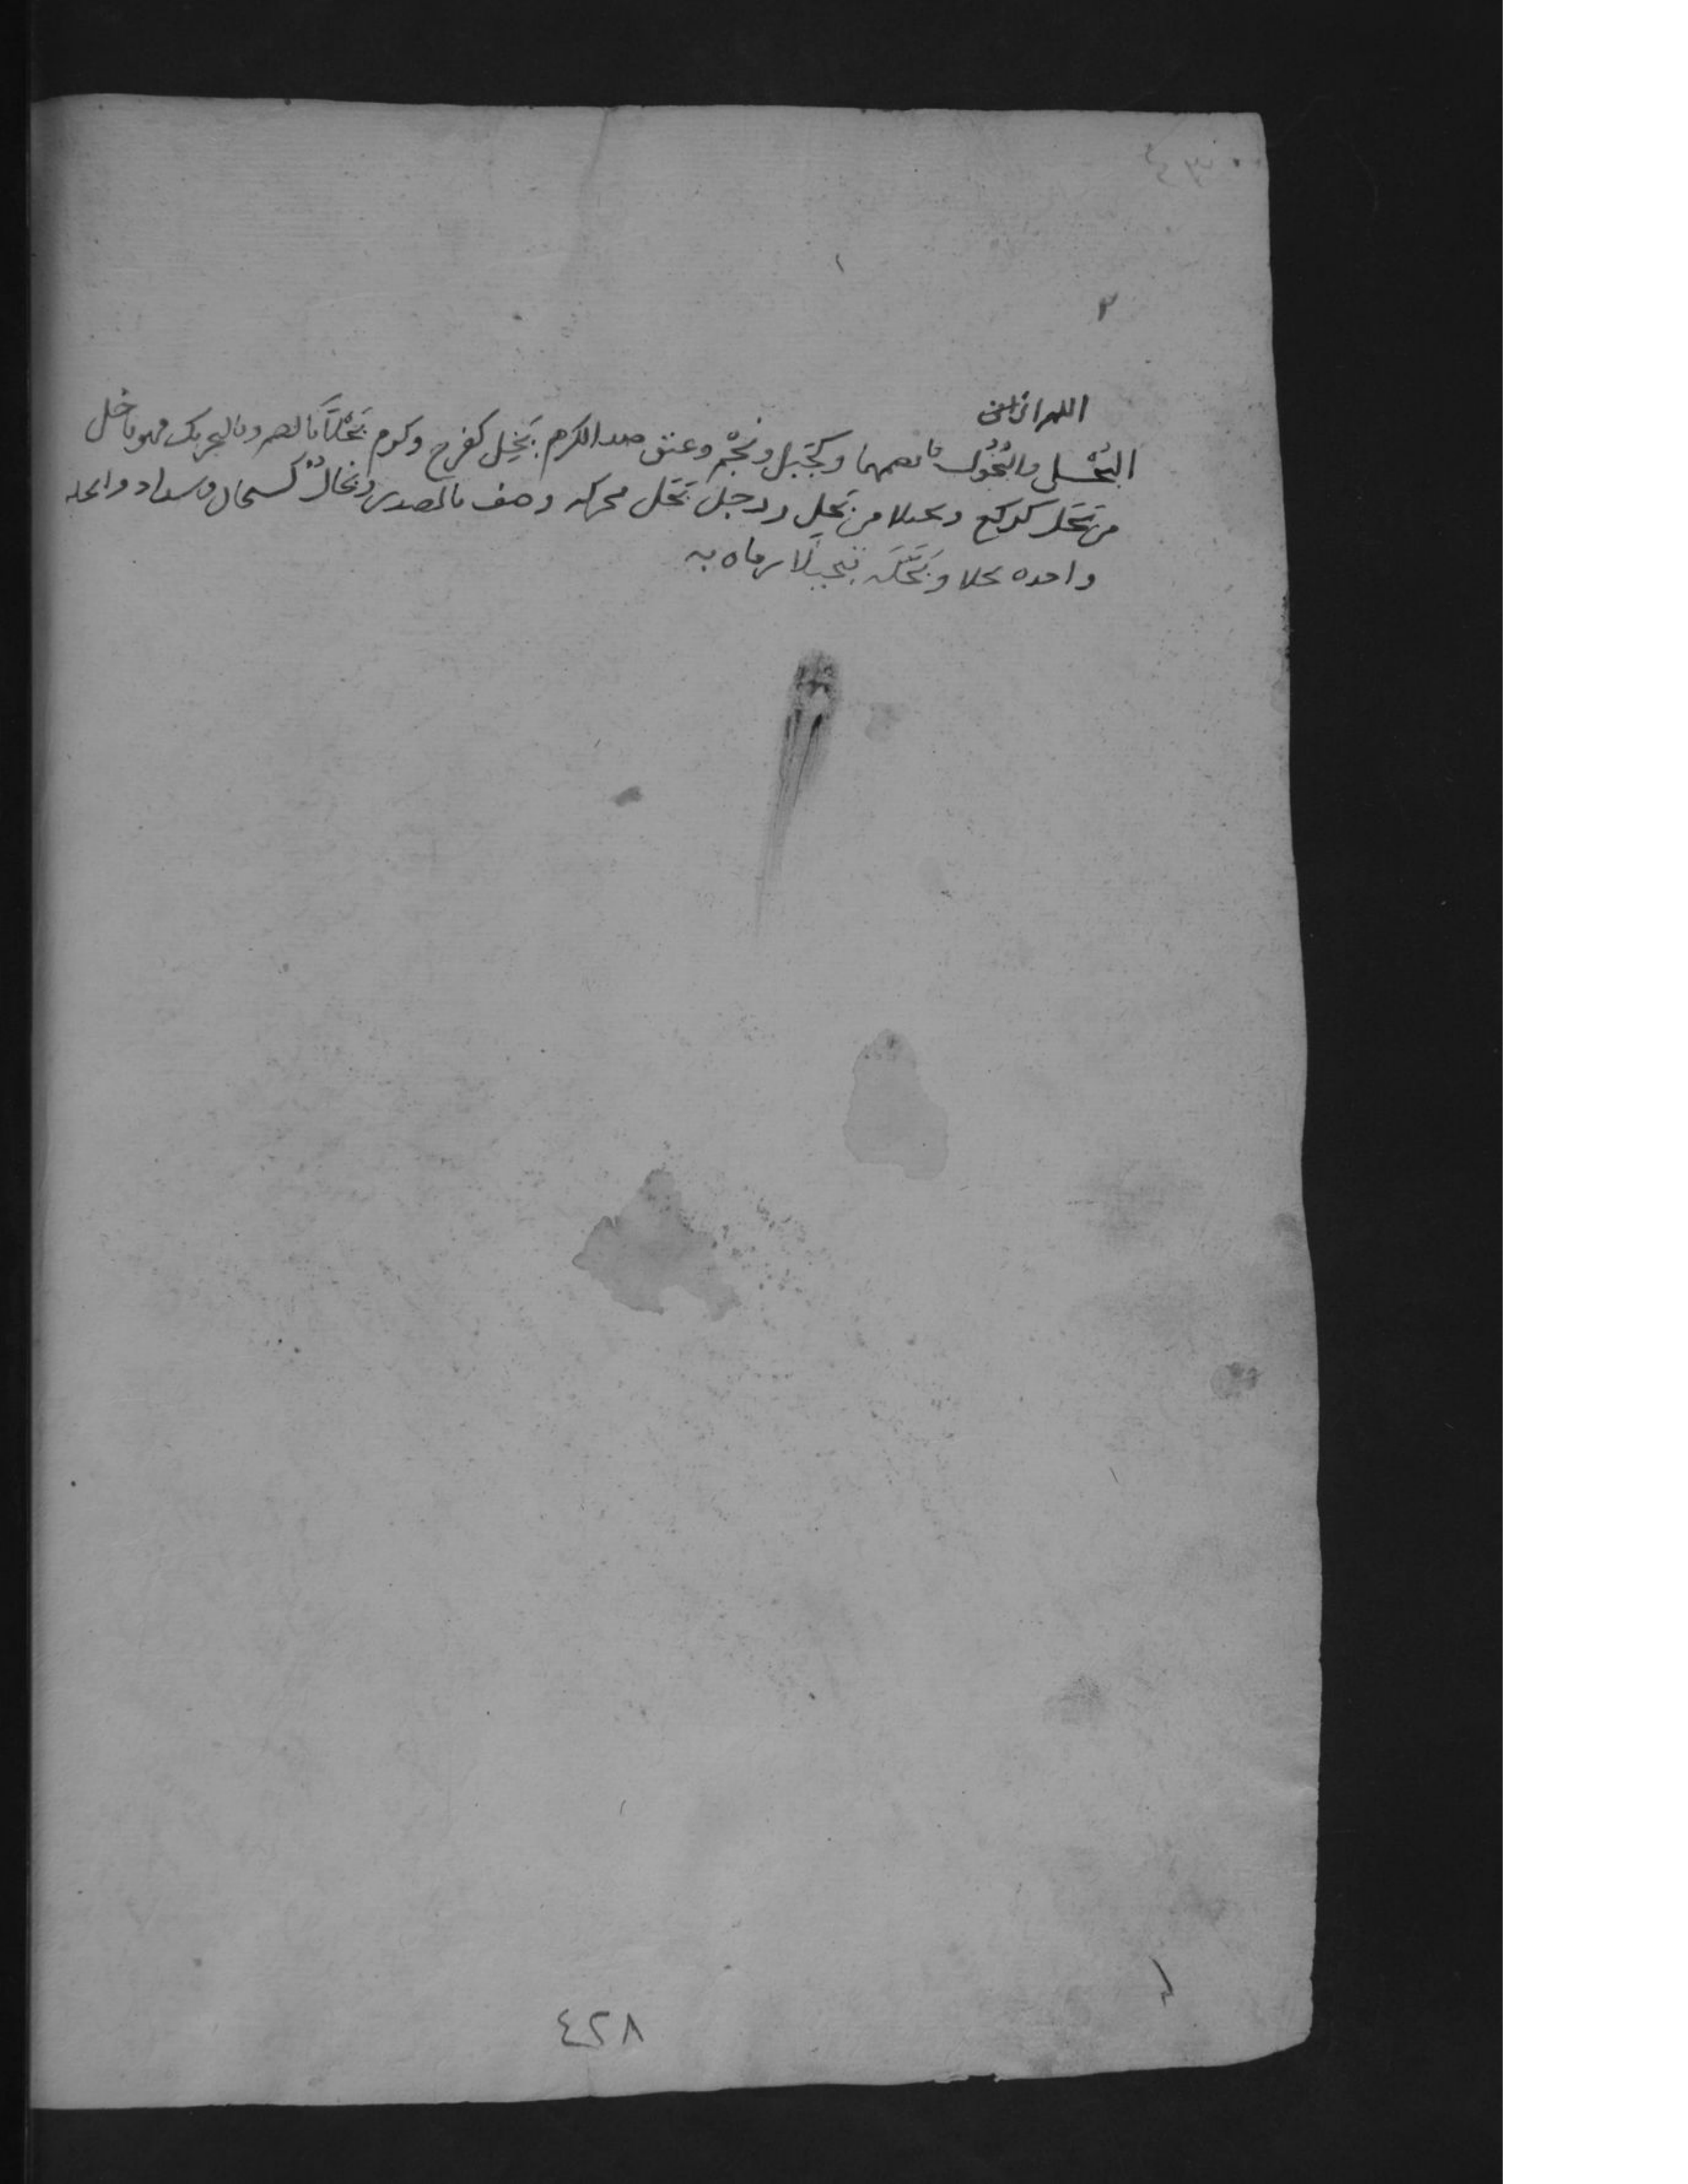 ٢
البُخْل والبُخُول بضمهما وكجبل ونجم وعنق ضد الكرم بَخِلَ كفرح وكرم بُخْلًا بالضم وبالتحريك فهو باخل
من بُخَّل كركع وبخيلا من بخلا ورجل بَخَل محركة وصف بالمصدر وبَخَال كسحاب وشداد
وابخله
وجده بخلا وبَخَّلَه تبخيلا رماه به
٤٢٨